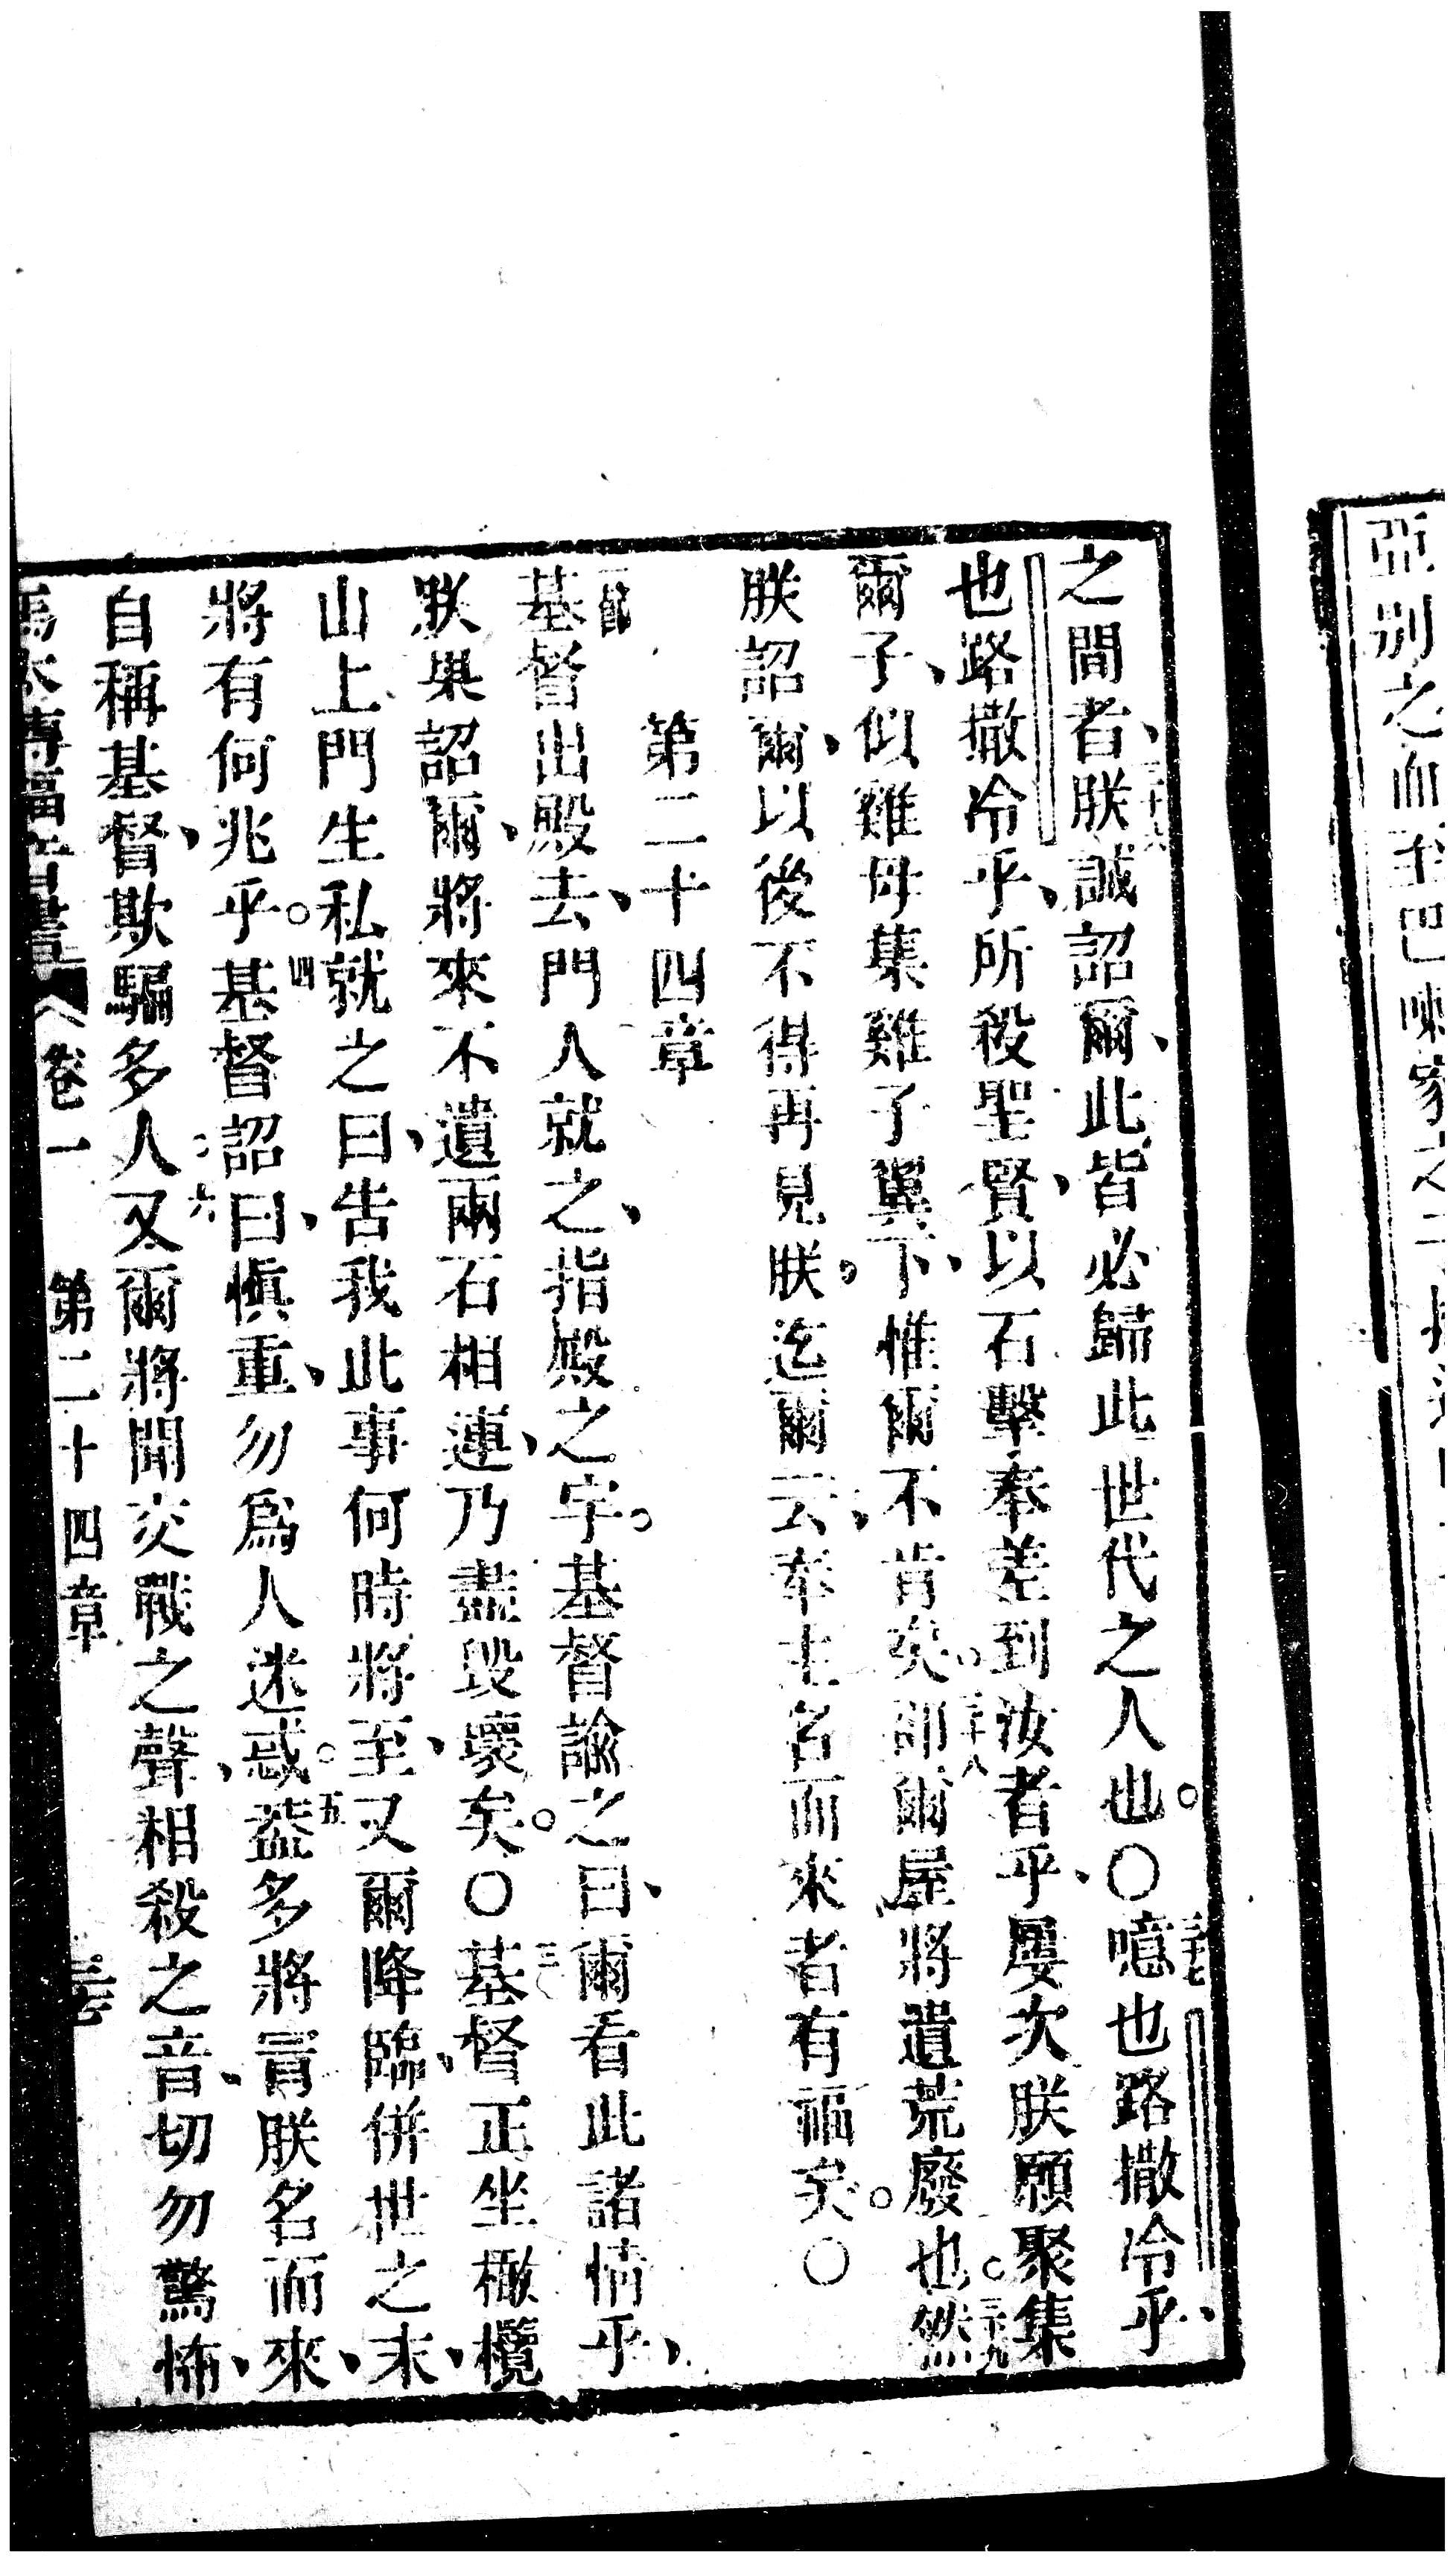 亞別之血至巴
之間者、三十六朕誠詔爾、此皆必歸此世代之人也。〇三十七噫也路撒冷乎、
也路撒冷乎、所殺聖賢、以石擊奉差到汝者乎、屢次朕願聚集
爾子、似雞母集雞子翼下、惟爾不肯矣。三十八卽爾屋將遺荒廢也。三十九然
朕詔爾、以後不得再見朕、迄爾云、奉主名而來者有福矣。〇
第二十四章
一節基督出殿去、門人就之、指殿之宇。基督諭之曰、爾看此諸情乎、
朕果詔爾、將來不遺兩石相連、乃盡毀壞矣。〇三基督正坐橄欖
山上門生私就之曰、告我此事何時將至、又爾降臨、併世之末、
將有何兆乎。四基督詔曰、愼重、勿爲人迷惑。五蓋多將冒朕名而來、
自稱基督、欺騙多人。六又爾將聞交戰之聲、相殺之音、切勿驚怖、
傳福音書 卷一 第二十四章